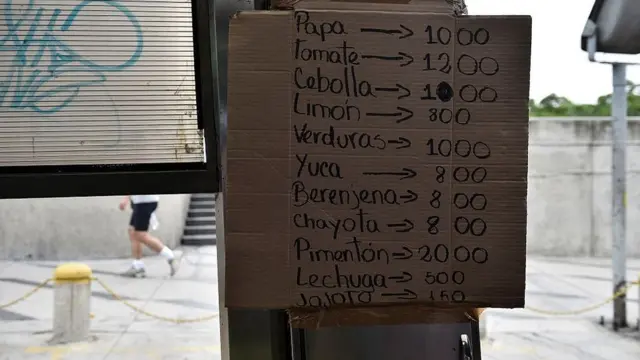 Papa → 1000
Tomate → 1200
Cebolla → 1000
Limón → 800
Verduras → 1000
Yuca → 800
Berenjena → 800
Chayota → 800
Pimentón → 2000
Lechuga → 500
Jajoto → 150